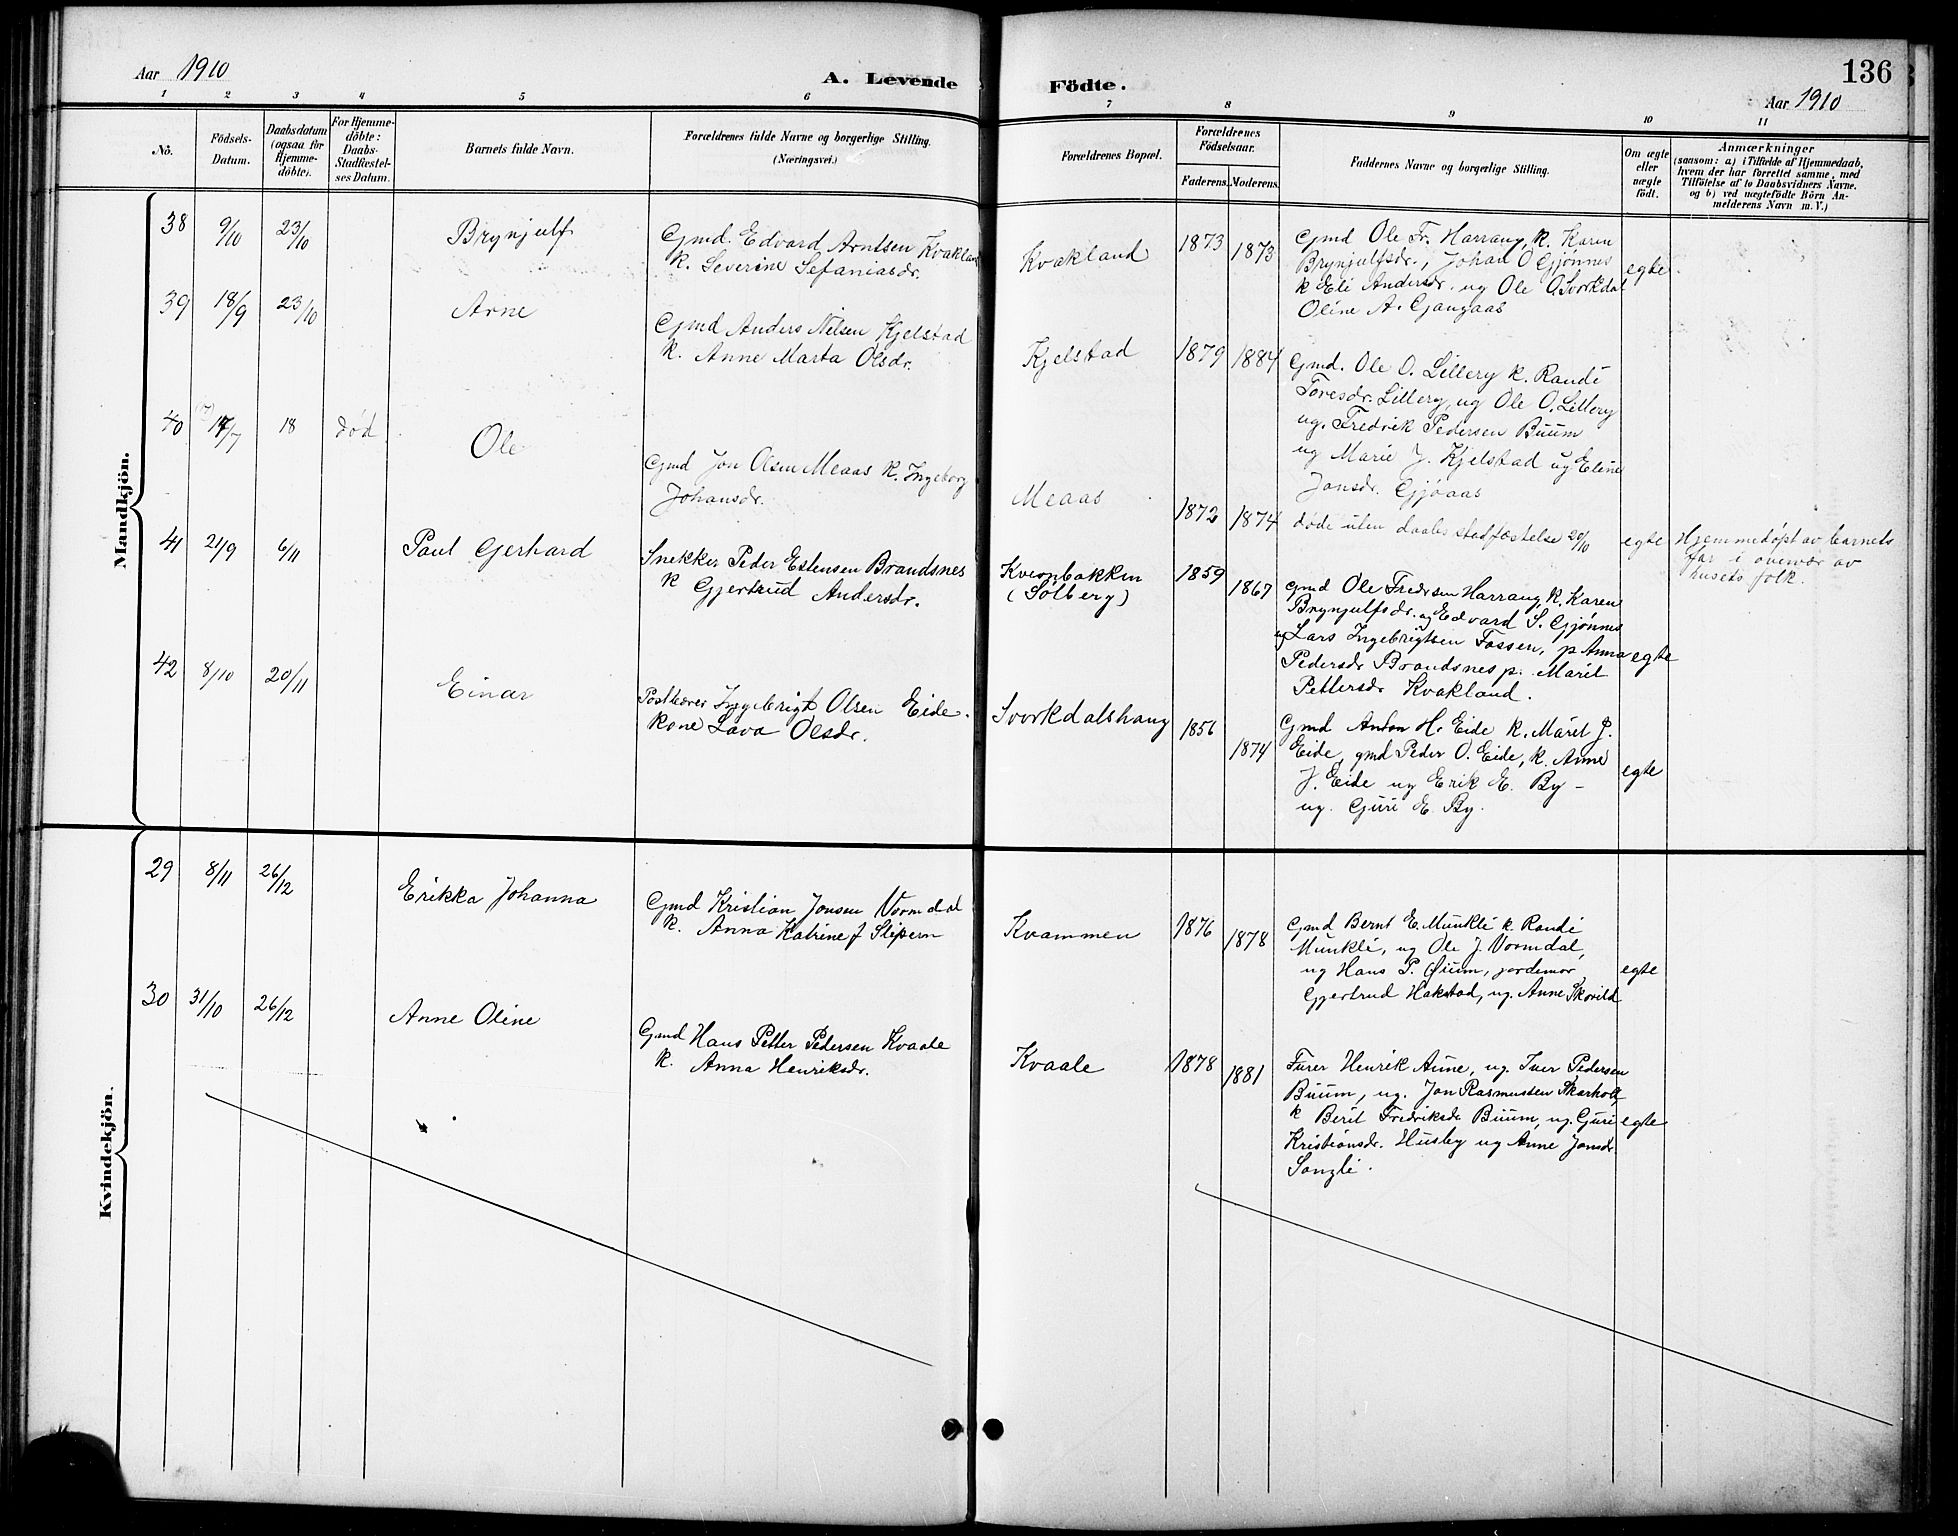 Aar 1910
A. Levende
Födte.
136
Aar 1910
1 2 3 4 5 6 7 8 9 10 11
Nö.
Födsels-
Datum.
Daabsdatum
(ogsaa for
Hjemme-
döbte).
For Hjemme-
döbte:
Daabs-
Stadfæstel-
ses Datum.
Barnets fulde Navn.
Forældrenes fulde Navne og borgerlige Stilling.
(Næringsvei.)
Forældrenes Bopæl.
Forældrenes
Födselsaar.
Faderens. Moderens.
Faddernes Navne og borgerlige Stilling.
Om ægte
eller
uægte
födt.
Anmærkninger
(saasom: a) i Tilfælde af Hjemmedaab,
hvem der har forrettet samme, med
Tilföielse af to Daabsvidners Navne.
og b) ved uægtefödte Börn An-
melderens Navn m. V.)
Mandkjön.
38 9/10 23/10 Brynjulf
Gmd. Edvard Arntsen Kvakland
k. Severine Sefaniasdr.
Kvakland 1873 1873
Gmd Ole Fr. Harrang, k. Karen
Brynjulfsdr., Johan O Gjønnes
k Eli Andersdr. ug Ole O. Svorkdal
Oline A. Gangaas
egte
39 18/9 23/10 Arne
Gmd Anders Nilsen Kjelstad
k. Anne Marta Olsdr.
Kjelstad 1879 1884
Gmd. Ole O. Lillery k. Randi
Toresdr. Lillery, ug Ole O. Lillery
ug. Fredrik Pedersen Buum
ug Marie J. Kjelstad ug Eline
Jonsdr. Gjøaas
40 17/7 18 død Ole
Gmd Jon Olsen Meaas k. Ingeborg
Johansdr.
Meaas 1872 1874
døde uten daabs stadfæstelse 20/10
egte
Hjemmedøpt av barnets
far i overvær av
husets folk.
41 21/9 6/11 Paul Gerhard
Snekker Peder Estensen Brandsnes
k Gjertrud Andersdr.
Kvernbakken
(Solberg)
1859 1867
Gmd Ole Fredrsen Harrang, k. Karen
Brynjulfsdr. ug Edvard S. Gjønnes
ug Lars Ingebrigtsen Fossen, p Anna
Pedersdr Brandsnes p. Marit
Pettersdr Kvakland.
egte
42 8/10 20/11 Einar
Postbærer Ingebrigt Olsen Eide.
kone Lava Olsdr.
Svorkdalshaug 1856 1874
Gmd Anton H. Eide k. Marit J.
Eide, gmd Peder O. Eide, k. Anne
J. Eide ug Erik E. By -
ug. Guri E By.
egte
Kvindekjön.
29 8/11 26/12 Erikka Johanna
Gmd Kristian Jonsen Vormdal
k. Anna Katrine J Slipern
Kvammen 1876 1878
Gmd Bernt E. Munkli k. Randi
Munkli, ug Ole J. Vormdal,
ug Hans P. Øium, jordemor
Gjertrud Hakstad, ug. Anne Skorild
egte
30 31/10 26/12 Anne Oline
Gmd Hans Petter Pedersen Kvaale
k. Anna Henriksdr.
Kvaale 1878 1881
Furer Henrik Aune, ug. Iver Pedersen
Buum, ug. Jon Rasmussen Skarholt,
k Berit Fredriksdr Buum, ug. Guri
Kristiansdr. Husby ug Anne Jonsdr
Songli.
egte